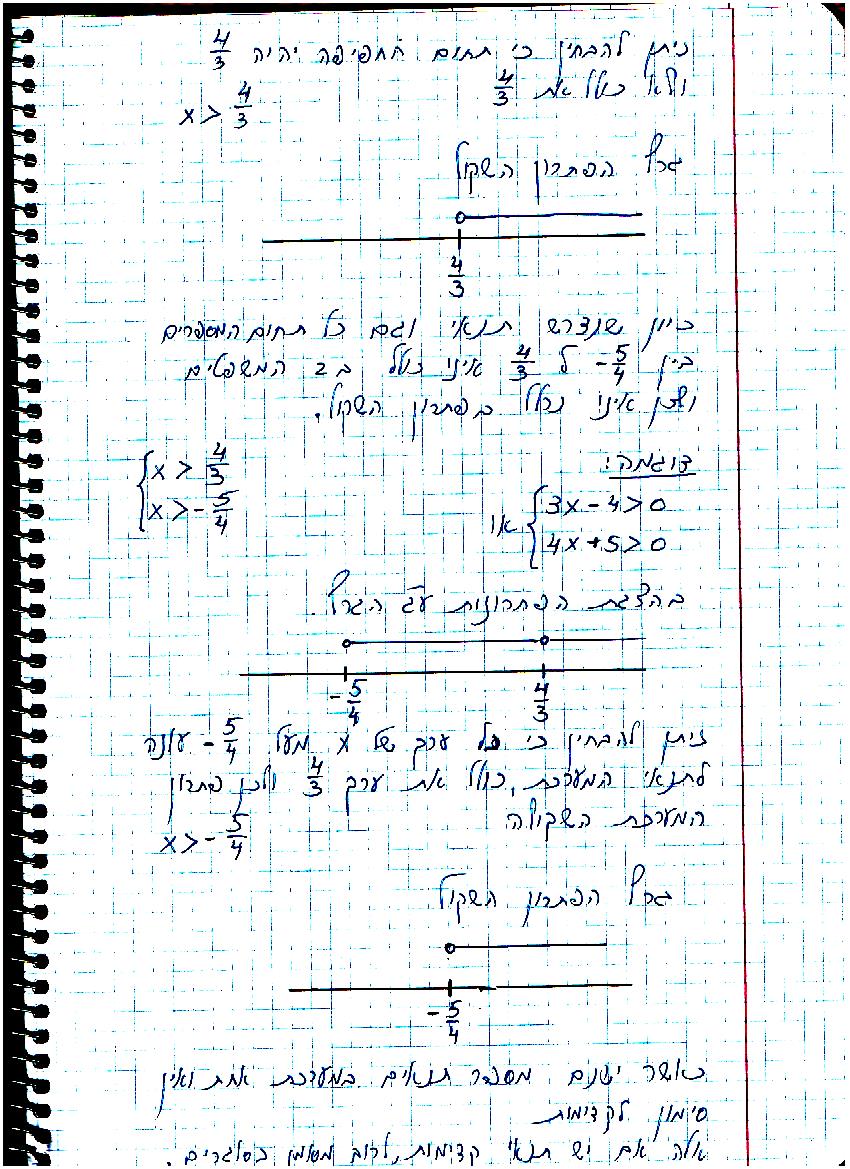 ניתן להבחין כי תחום החפיפה יהיה 4/3
ולא כולל את 4/3
x > 4/3
גרף הפתרון השקול
4/3
כיוון שנדרש תנאי וגם כל תחום המספרים
בין -5/4 ל 4/3 אינו כולל ב 2 המשפטים
ולכן אינו נכלל בפתרון השקול.
דוגמה:
או { 3x - 4 > 0
4x + 5 > 0
{ x > 4/3
x > -5/4
בהצגת הפתרונות על הגרף.
-5/4 4/3
ניתן להבחין כי כל ערך של x מעל -5/4 עונה
לתנאי המערכת, כולל את ערך 4/3 ולכן פתרון
המערכת השקולה
x > -5/4
גרף הפתרון השקול
-5/4
כאשר ישנם מספר תנאים במערכת אחת ואין
סימון לקדימות
אלה אם יש תנאי קדימות, לרוב מסומן בסוגריים.